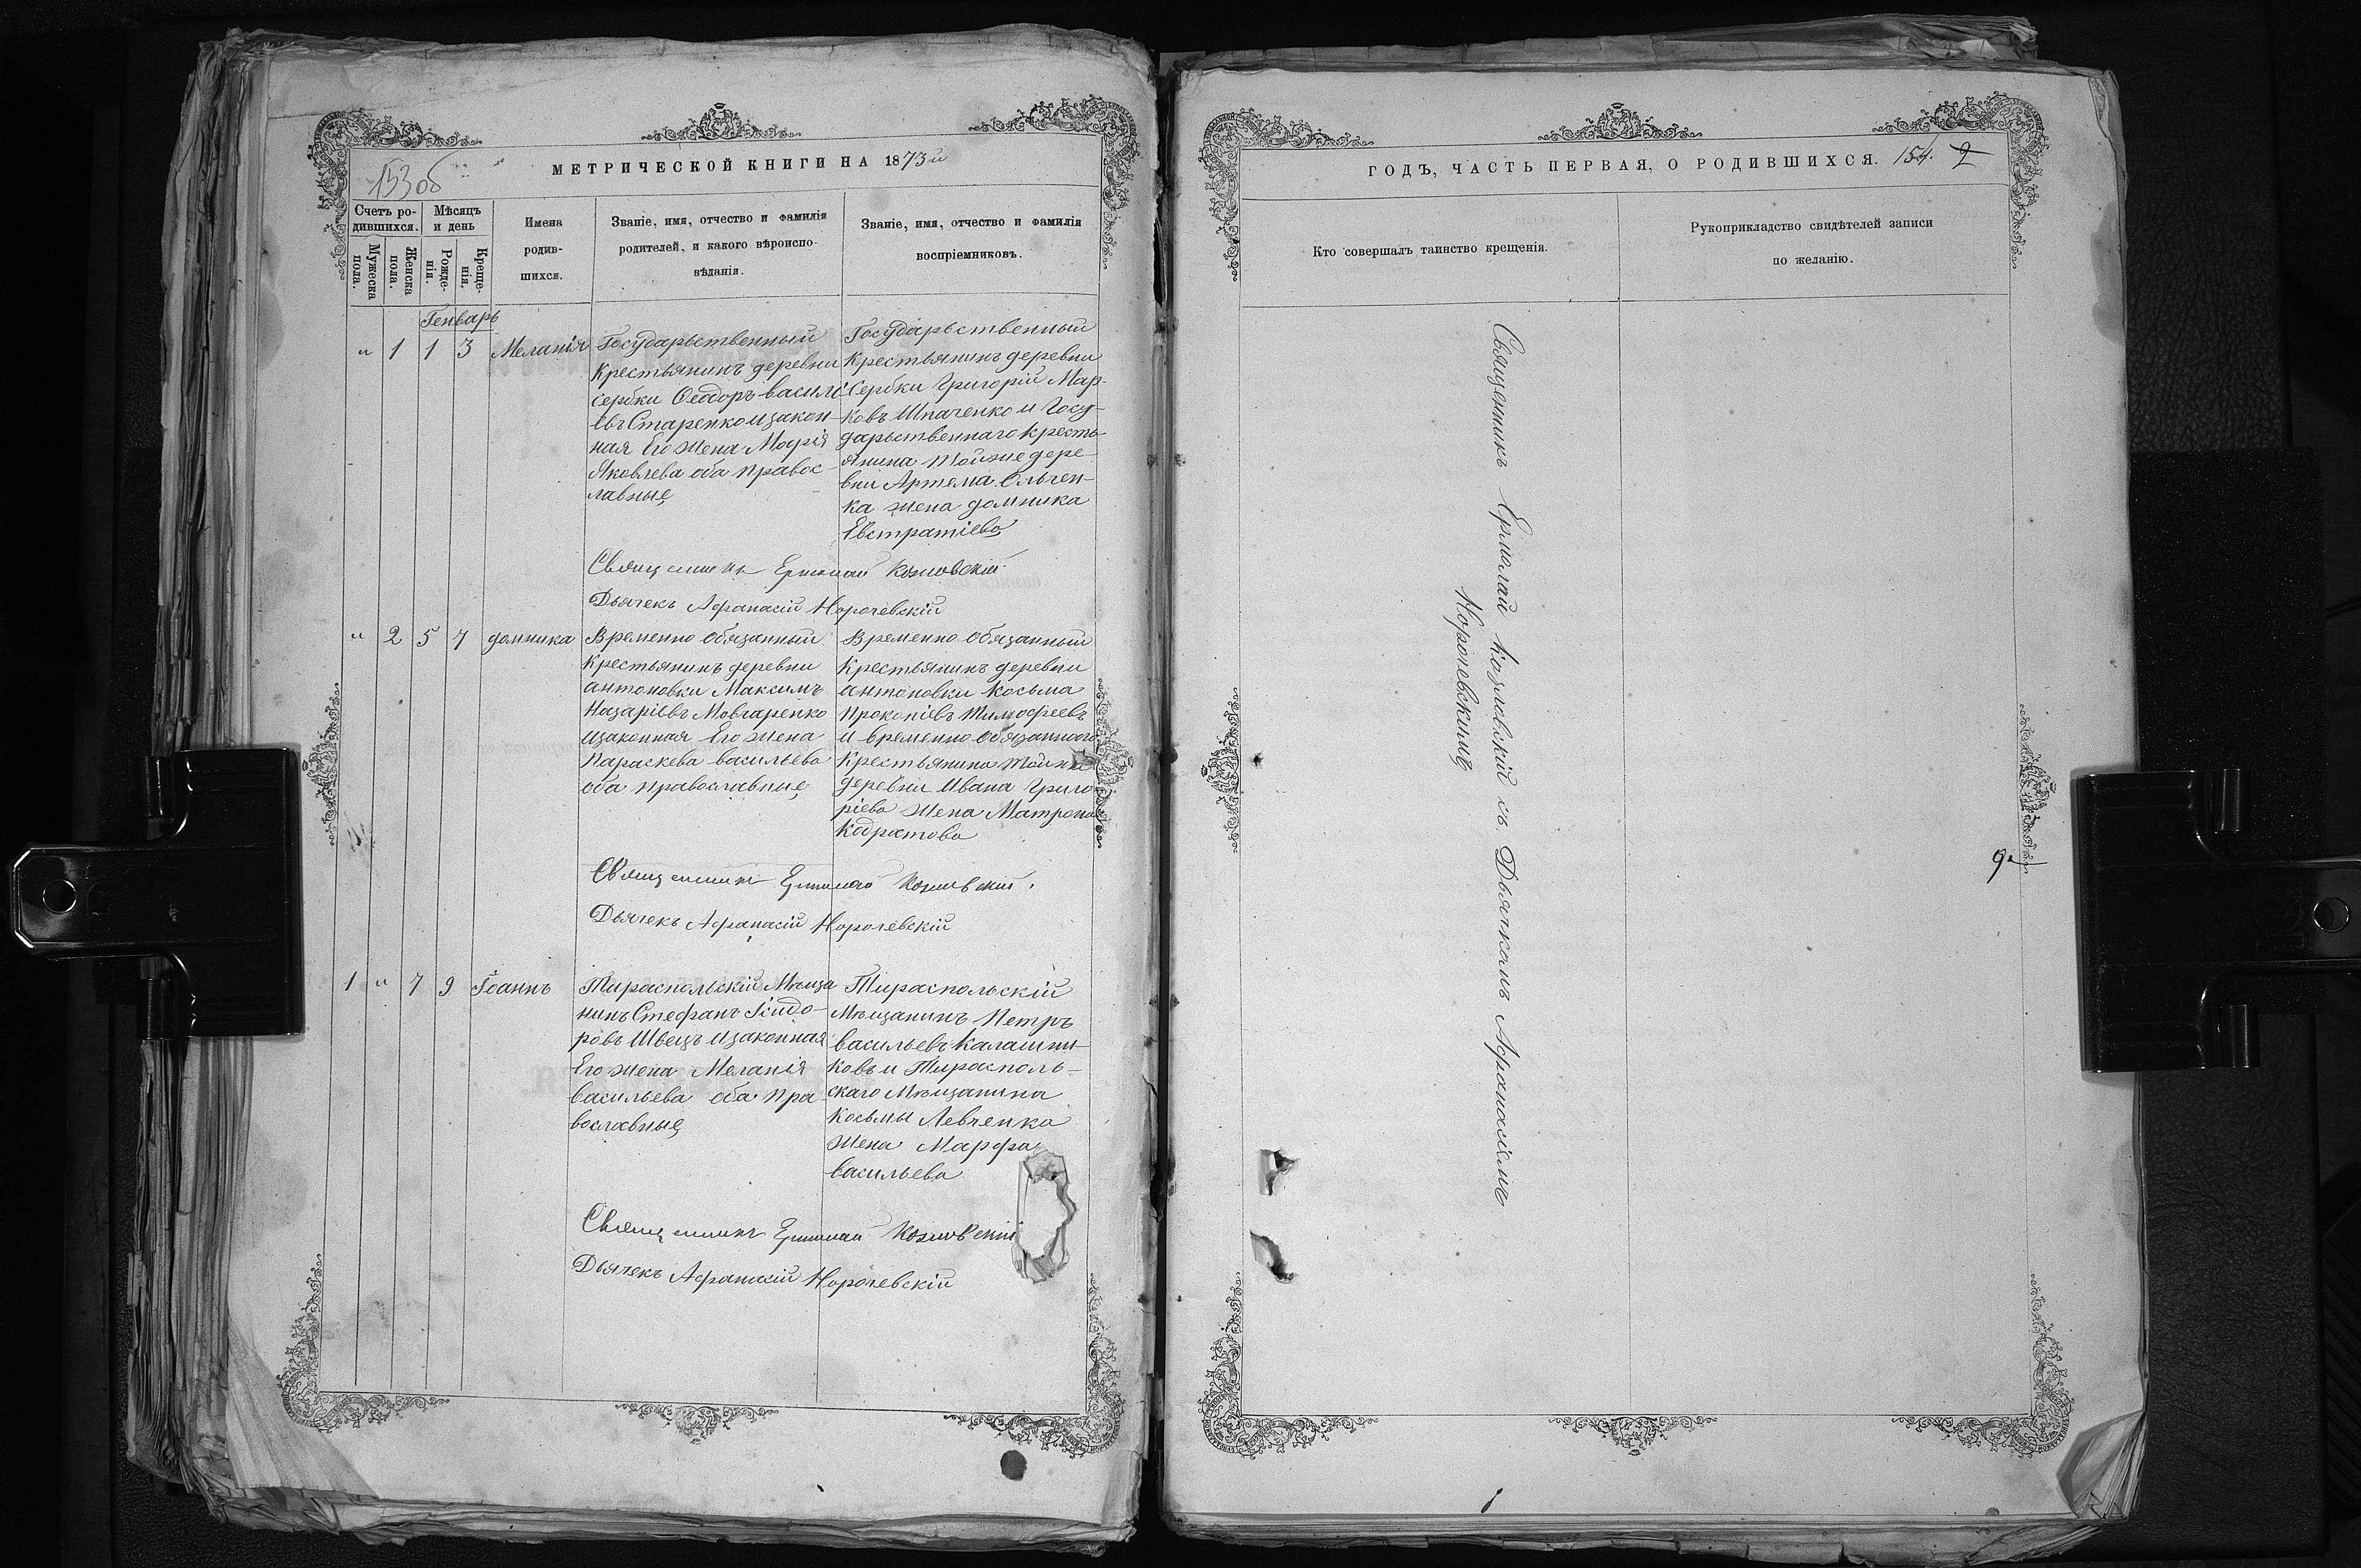 153 об
МЕТРИЧЕСКОЙ КНИГИ НА 1873й
Счетъ ро-
дившихся.
Мѣсяцъ
и день
Мужеска
пола.
Женска
пола.
Рожде-
нія.
Креще-
нія.
Имена
родив-
шихся.
Званіе, имя, отчество и фамилія
родителей, и какого вѣроиспо-
вѣданія.
Званіе, имя, отчество и фамилія
воспріемниковъ.
Генварь
" 1 1 3 Меланія
Государьственный
Крестьянинъ деревни
Сербки Ѳеодоръ Василі-
евъ Старенко и закон-
ная Его жена Марія
Яковлева оба правос-
лавные
Государьственный
Крестьянинъ деревни
Сербки Григорій Мар-
ковъ Шпаченко и Госу-
дарьственнаго Кресть-
янина тойже дере-
вни Артема Ольчен-
ка жена домника
Евстратіева
Священникъ Ермолай Козловскій
Дьячекъ Афанасій Норочевскій
" 2 5 7 домника
Временно обязанный
Крестьянинъ деревни
антоновки Максимъ
Назаріевъ Мовчаренко
изаконная Его жена
Параскева васильева
оба православные
Временно обязанный
Крестьянинъ деревни
антоновки Косьма
Прокопіевъ Тимофеевъ
и временно обязаннаго
Крестьянина тойже
деревни Ивана Григо
ріева жена Матрона
Кодратова
Священникъ Ермолай Козловскій
Дьячекъ Афанасій Норочевскій
1 " 7 9 Іоаннъ
Тираспольскій Мѣща
нинъ Стефанъ Ісидо-
ровъ Швецъ изаконная
Его жена Меланія
васильева оба пра-
вославные
Тираспольскій
Мѣщанинъ Петръ
васильевъ Калашни-
ковъ и Тирасполь-
скаго Мѣщанина
Косьмы Левченка
жена Марфа
васильева
Священникъ Ермолай Козловскій
Дьячекъ Афанасій Норочевскій
ГОДЪ, ЧАСТЬ ПЕРВАЯ, О РОДИВШИХСЯ. 154. 2
Кто совершалъ таинство крещенія.
Рукоприкладство свидѣтелей записи
по желанію.
Священникъ Ермолай Козловскій съ Дьячкомъ Афанасіемъ
Норочевскимъ